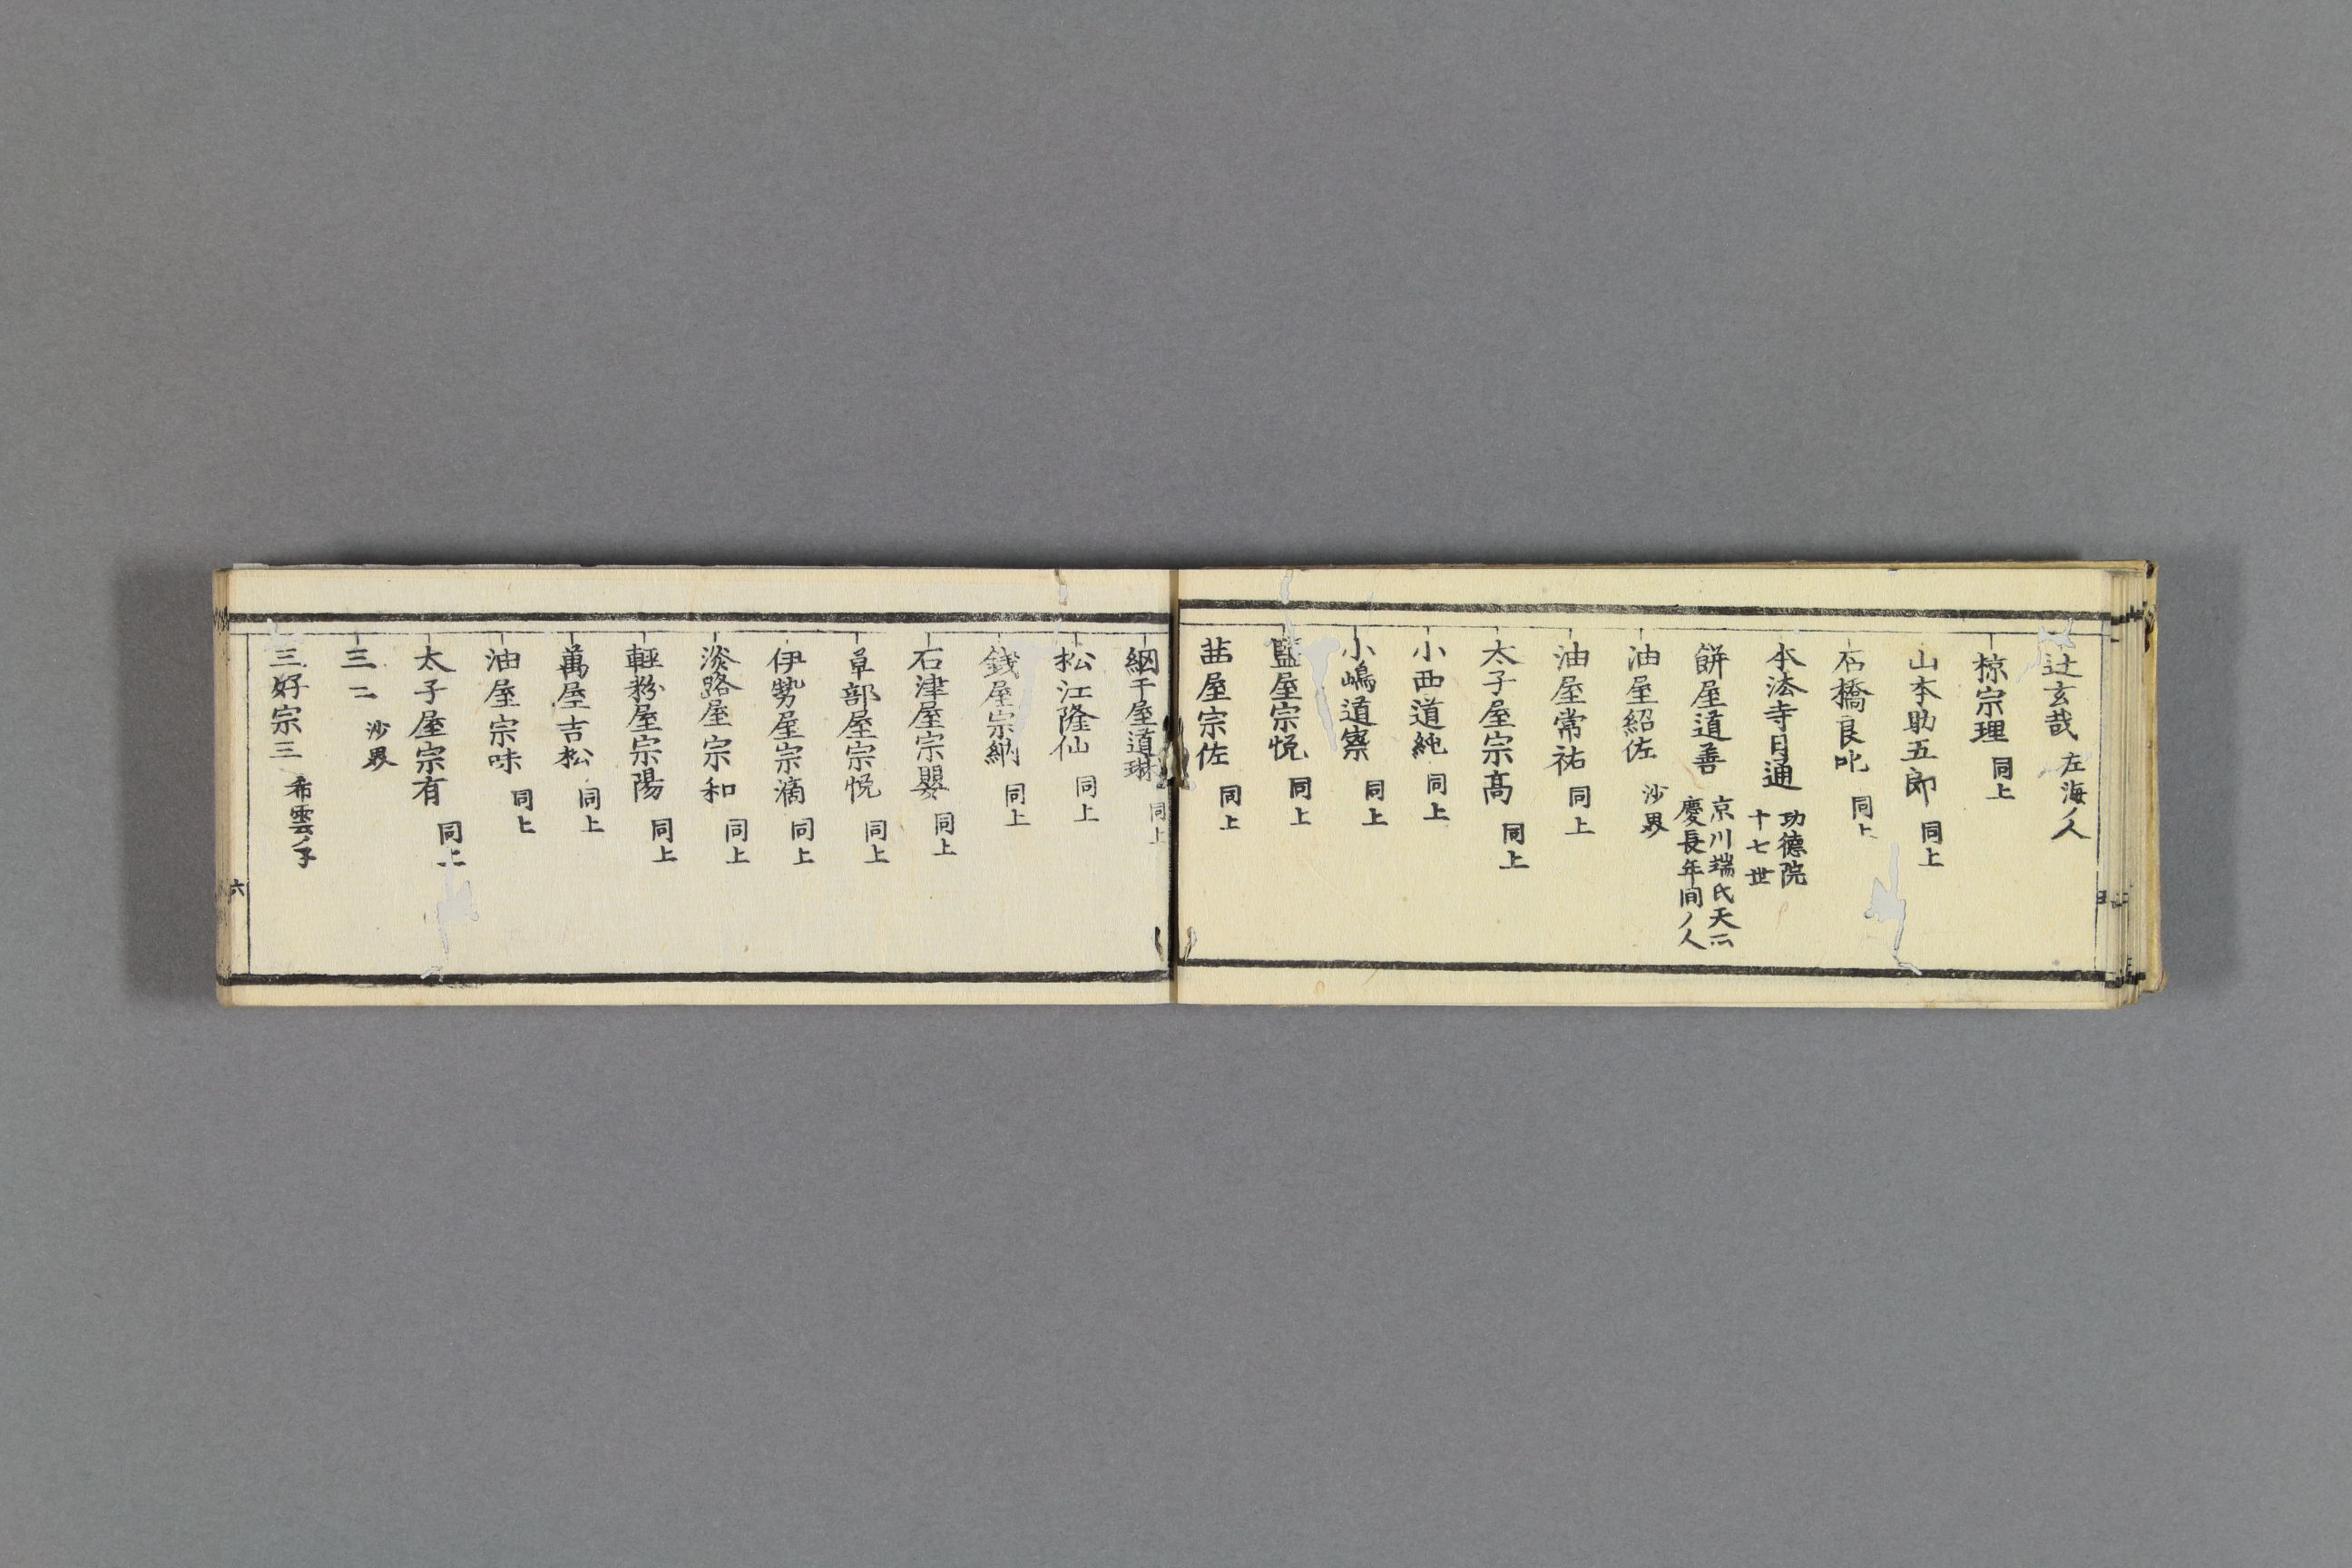 辻玄哉 左海ノ人
椋宗理 同上
山本助五郎 同上
石橋良叱 同上
本法寺日通 功德院
十七世
餅屋道善 京川端氏天正
慶長年间ノ人
油屋紹佐 沙界
油屋常祐 同上
太子屋宗髙 同上
小西道純 同上
小嶋道察 同上
盬屋宗悦 同上
茜屋宗佐 同上
網干屋道琳 同上
松江隆仙 同上
銭屋宗納 同上
石津屋宗嬰 同上
草部屋宗悦 同上
伊勢屋宗滴 同上
淡路屋宗和 同上
軽粉屋宗陽 同上
萬屋吉松 同上
油屋宗味 同上
太子屋宗有 同上
三二 沙界
三好宗三 希雲ノ子
六